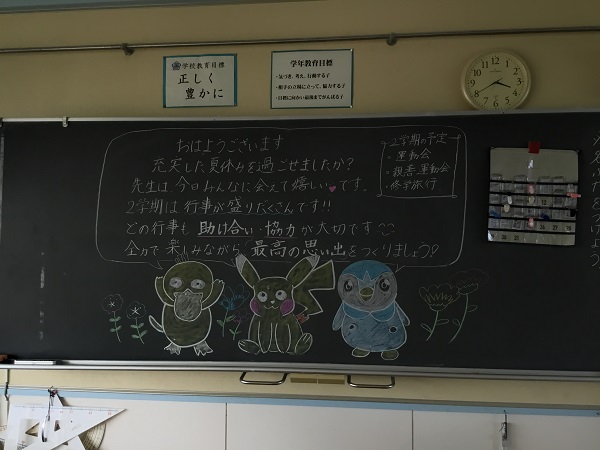 学校教育目標
正しく
豊かに
学年教育目標
・気づき、考え、行動する子
・相手の立場に立って、協力する子
・目標に向かい最後までがんばる子
おはようございます
充実した夏休みを過ごせましたか？
先生は、今日みんなに会えて嬉しい♥です。
2学期は行事が盛りだくさんです!!
どの行事も助け合い・協力が大切です
全力で楽しみながら最高の思い出をつくりましょう！
2学期の予定
・運動会
・親善運動会
・修学旅行